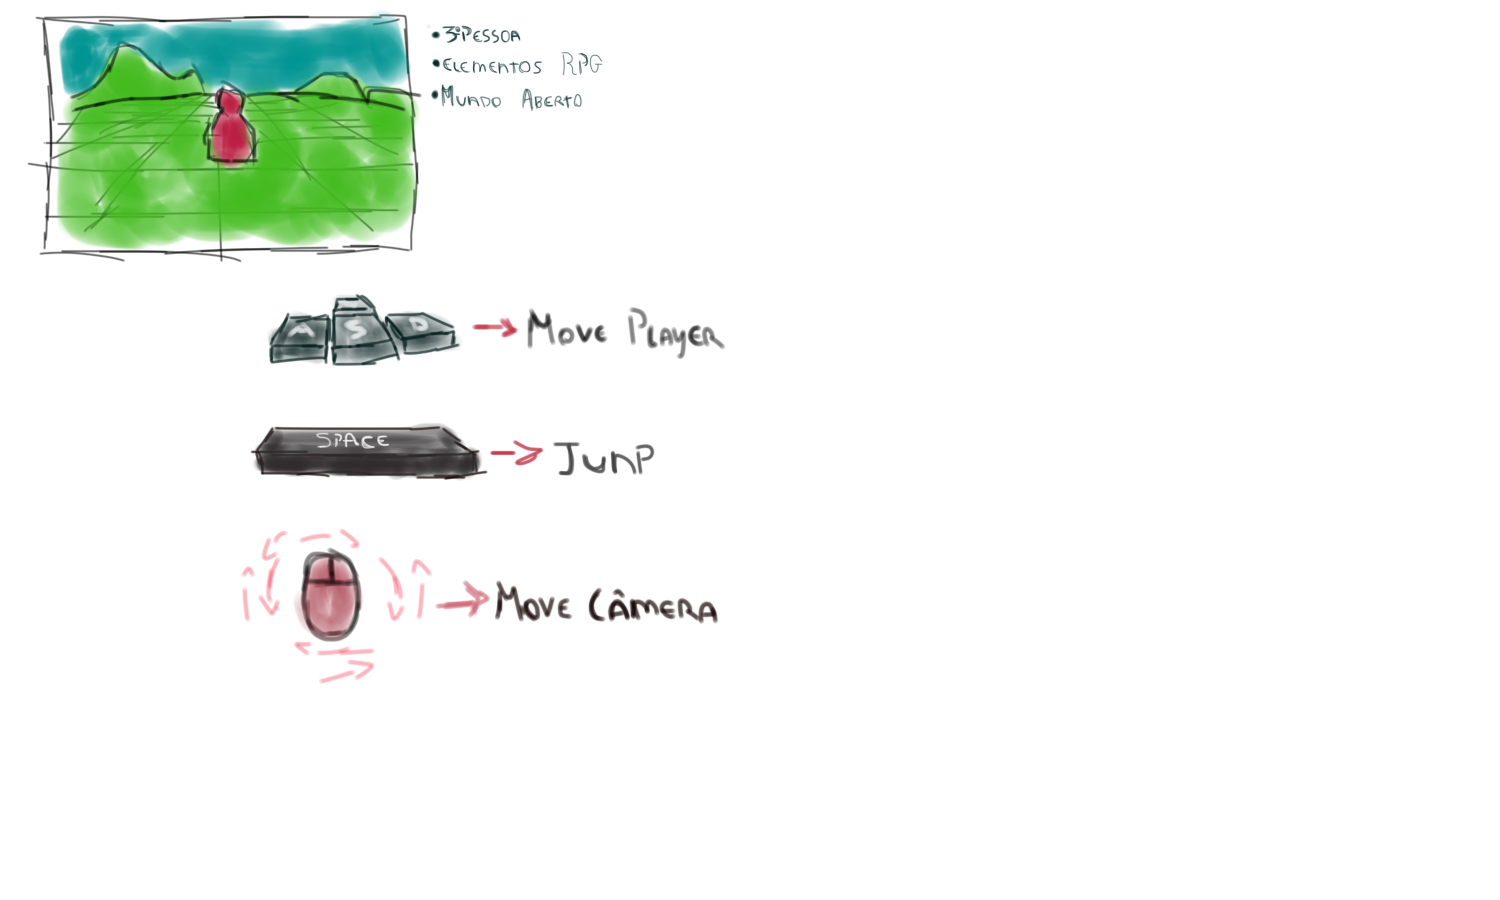 •3ºPESSOA
•ELEMENTOS RPG
•MUNDO ABERTO
A S D → MOVE PLAYER
SPACE → JUMP
→ MOVE CÂMERA